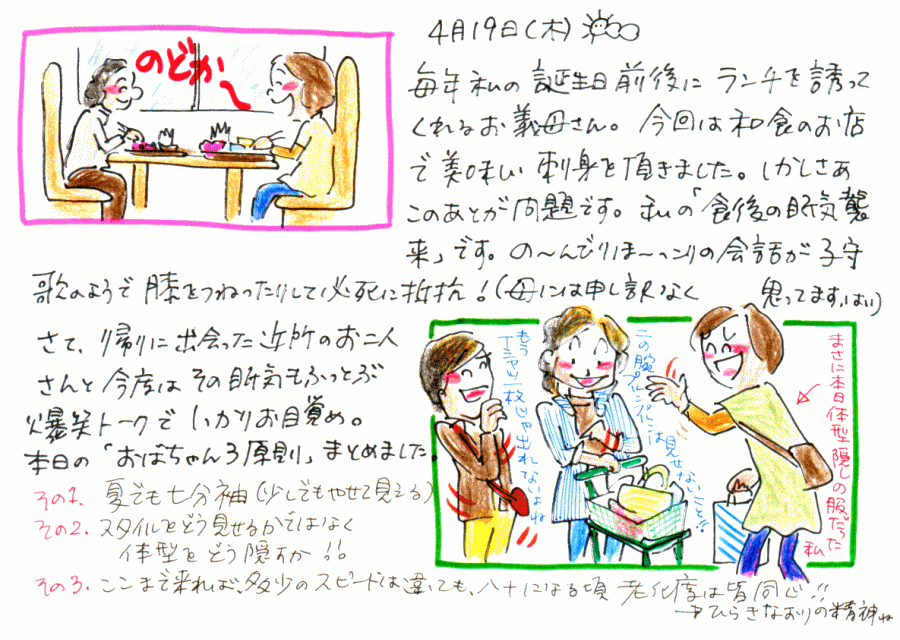 4月19日(木)
のどか〜
毎年私の誕生日前後にランチを誘って
くれるお義母さん。今回は和食のお店
で美味しい刺身を頂きました。しかしさあ
このあとが問題です。私の「食後の眠気襲
来」です。の〜んびりほ〜っこりの会話が子守
歌のようで膝をつねったりして必死に抵抗!(母には申し訳なく
思ってます。はい)
さて、帰りに出会った近所のお二人
さんと今度はその眠気もふっとぶ
爆笑トークでしっかりお目覚め。
本日の「おばちゃん3原則」まとめました
その1. 夏でも七分袖(少しでもやせて見える)
その2. スタイルをどう見せるかではなく
体型をどう隠すか!!
その3. ここまで来れば、多少のスピードは違っても、八十になる頃老化度は皆同じ!!
→ひらきなおりの精神ね
もう
Tシャツ一枚じゃ出れないよね
二の腕プルンプルンは
見せないこと!!
まさに本日体型隠しの服だった
私